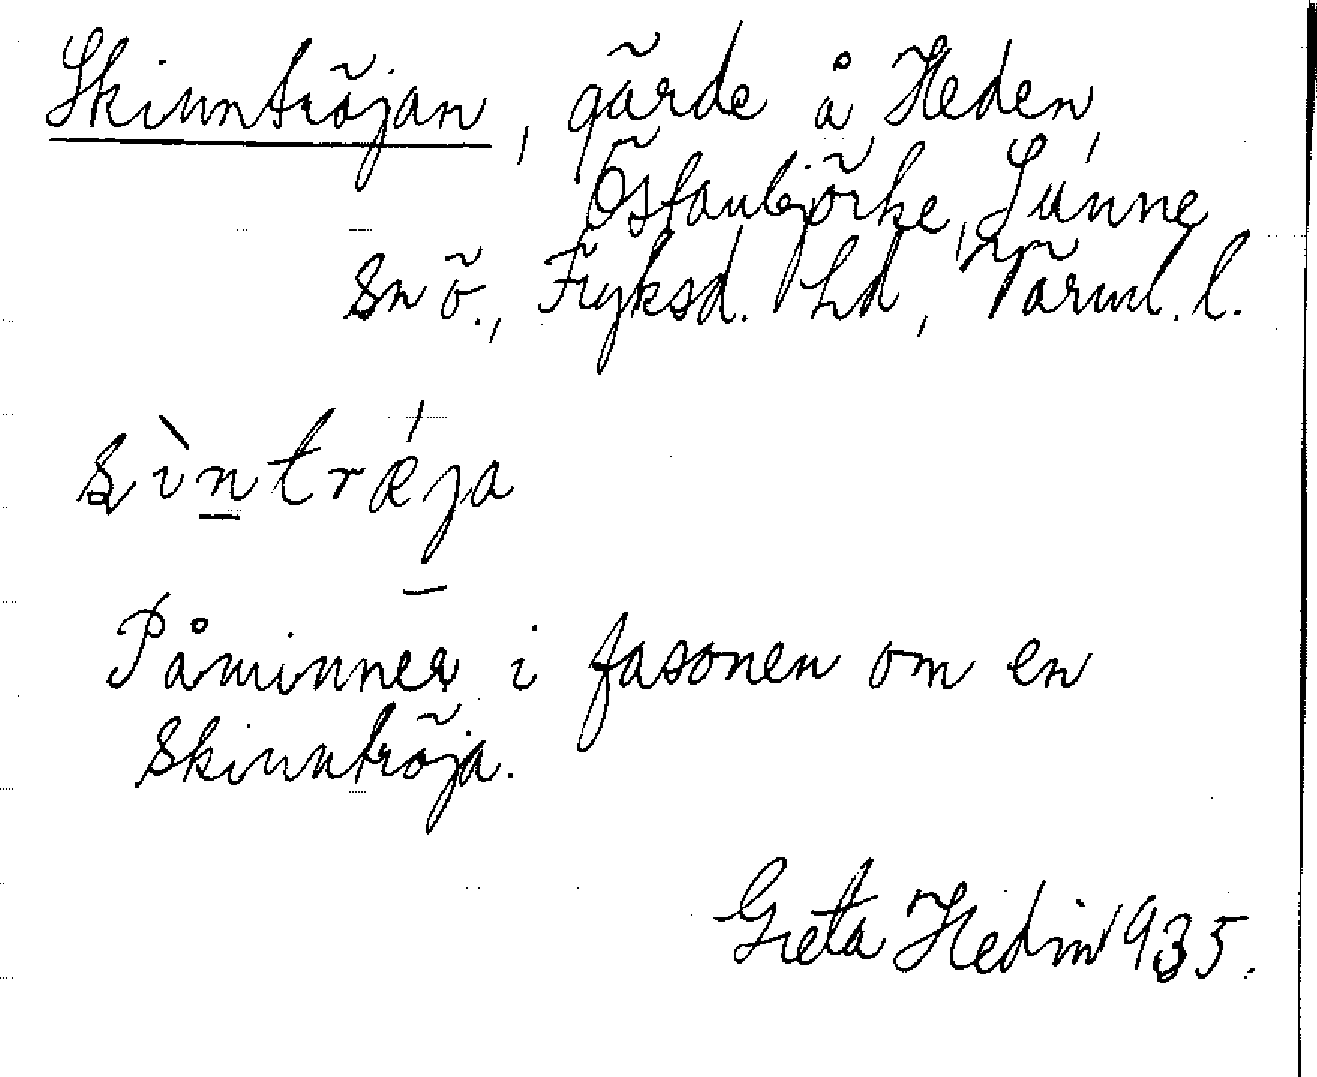 Skinntröjan, gärde å Heden,
Östanbjörke, Sunne
sn ö., Fryksd. hd, Värml. l.
s̨ìntrǽja
Påminner i fasonen om en
skinntröja.
Greta Hedin 1935.